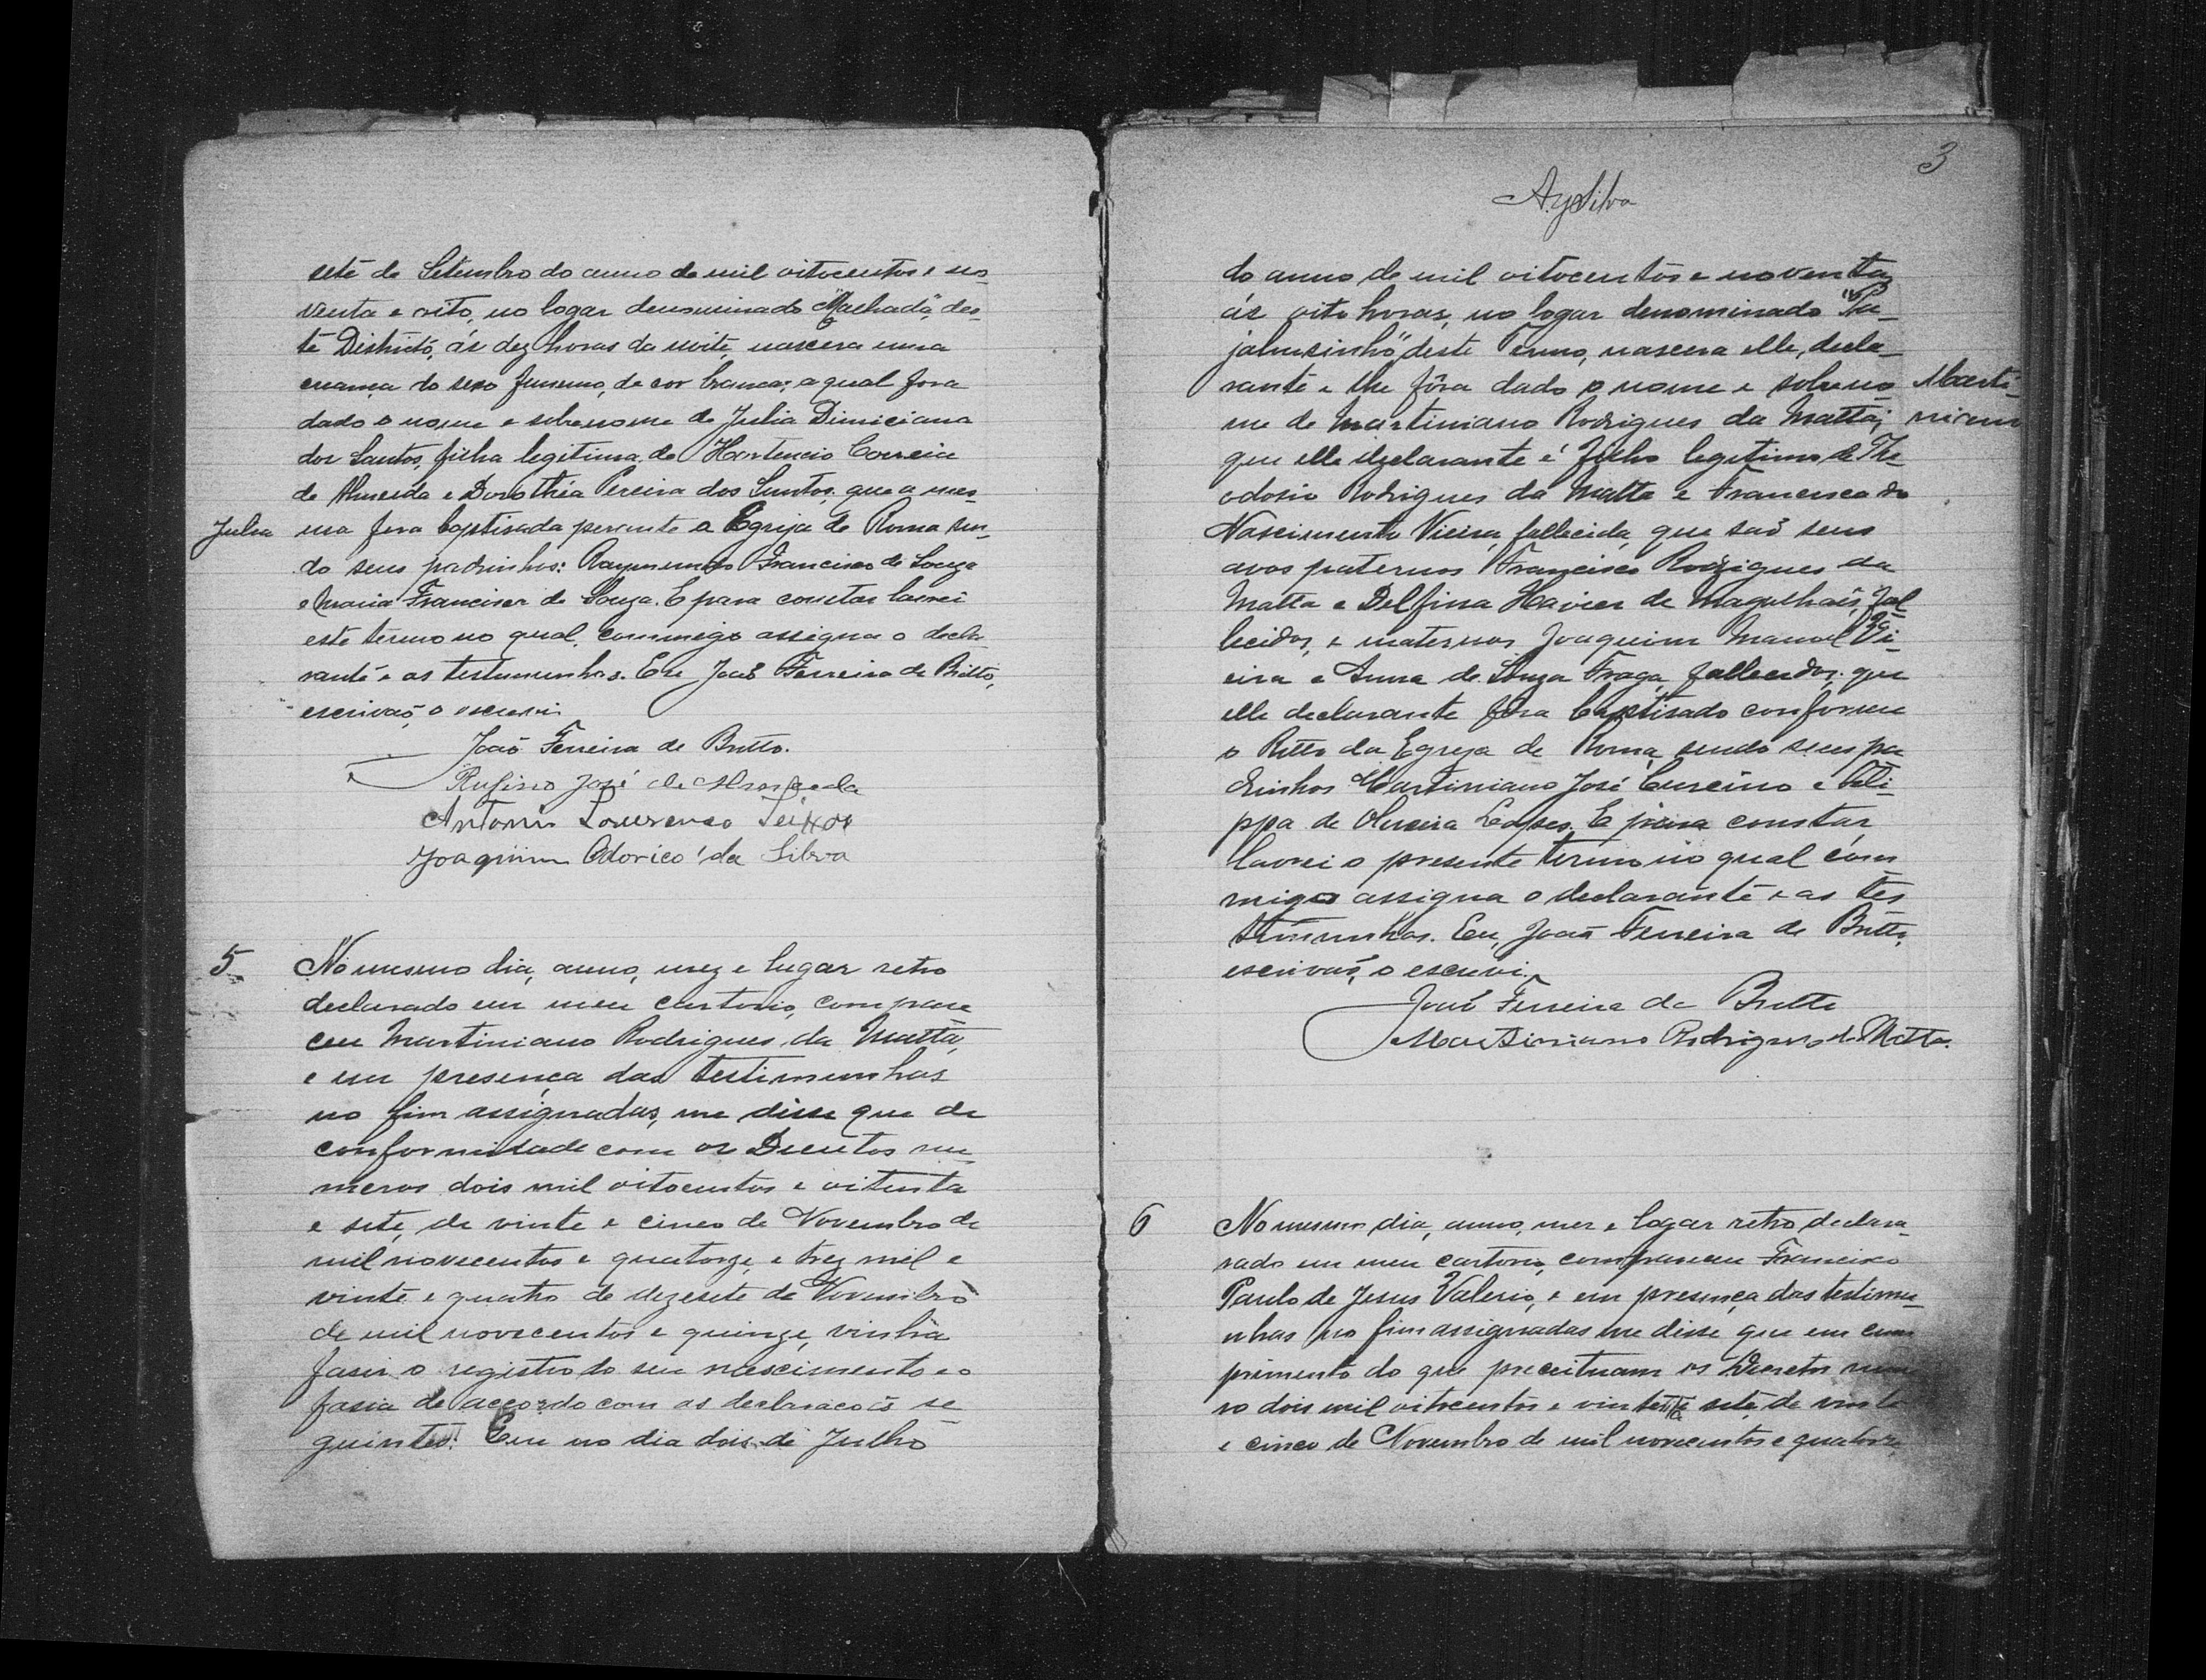 sete de Setembro do anno de mil oitocentos e no-
venta e oito, no logar denominado "Machado", des-
te Districto, ás dez horas da noite, nascera uma
creança do sexo femeino, de cor branca; a qual fora
dado o nome e sobrenome de Julia Diniciana
dos Santos, filha legitima de Hortencio Correia
de Almeida e Dorothéa Pereira dos Santos; que a mes-
Julia
ma fora baptisada perante a Egreja de Roma sen-
do seus padrinhos: Raymundo Francisco de Souza
e Maria Francisca de Souza. E para constar lavrei
este termo no qual commigo assigna o decla-
rante e as testemunhas. Eu João Ferreira de Britto,
escrivão o escrevi
João Ferreira de Britto.
Rufino José de Almeida
Antonio Lourenço
Joaquim Odorico da Silva
5
No mesmo dia, anno, mez e lugar retro
declarado em meu cartorio, compare
ceu Martiniano Rodrigues da Matta,
e em presença das testimunhas
no fim assignadas, me disse que de
conformidade com os Decretos nu-
meros dois mil oitocentos e oitenta
e sete, de vinte e cinco de Novembro de
mil novecentos e quatorze, e trez mil e
vinte e quatro de dezesete de Novembro
de mil novecentos e quinze, vinha
faser o registro do seu nascimento e o
fasia de accordo com as declaracoẽs se
guintes: Que no dia dois de Julho
3
A. y Silva
do anno de mil oitocentos e noventa,
ás oito horas, no logar denominado
deste Termo, nascera elle, decla-
rante e lhe fôra dado o nome e sobreno-
Marti-
me de Martiniano Rodrigues da Matta;
niano
que elle declarante é filho legitimo de The-
odosio Rodrigues da Matta e Francisca do
Nascimento Vieira, fallecida, que saõ seus
avos paternos Francisco Rodrigues da
Matta e Delfina Havier de Magalhaẽs, fal-
lecidos, e maternos Joaquim Manoel Vi-
eira e Anna de Souza Fraga, fallecidos; que
elle declarante fôra baptisado conforme
o Ritto da Egreja de Roma, sendo seus pa
drinhos Martiniano José Curcino e Feli-
ppa de Oliveira Lopes. E para constar,
lavrei o presente termo no qual com
migo assigna o declarante e as tes
timunhas. Eu, João Ferreira de Britto,
escrivaõ, o escrevi.
João Ferreira de Britto
Martiniano Rodrigues da Matta.
6
No mesmo dia, anno, mez e logar retro, declara-
rado em meu cartorio, compareceu Francisco
Paulo de Jesus Valerio, e em presença das testimu-
nhas no fim assignadas me disse que em cum
primento do que preceituam os Decretos nume
ro dois mil oitocentos e sete de vinte
e cinco de Novembro de mil novecentos e quatorze